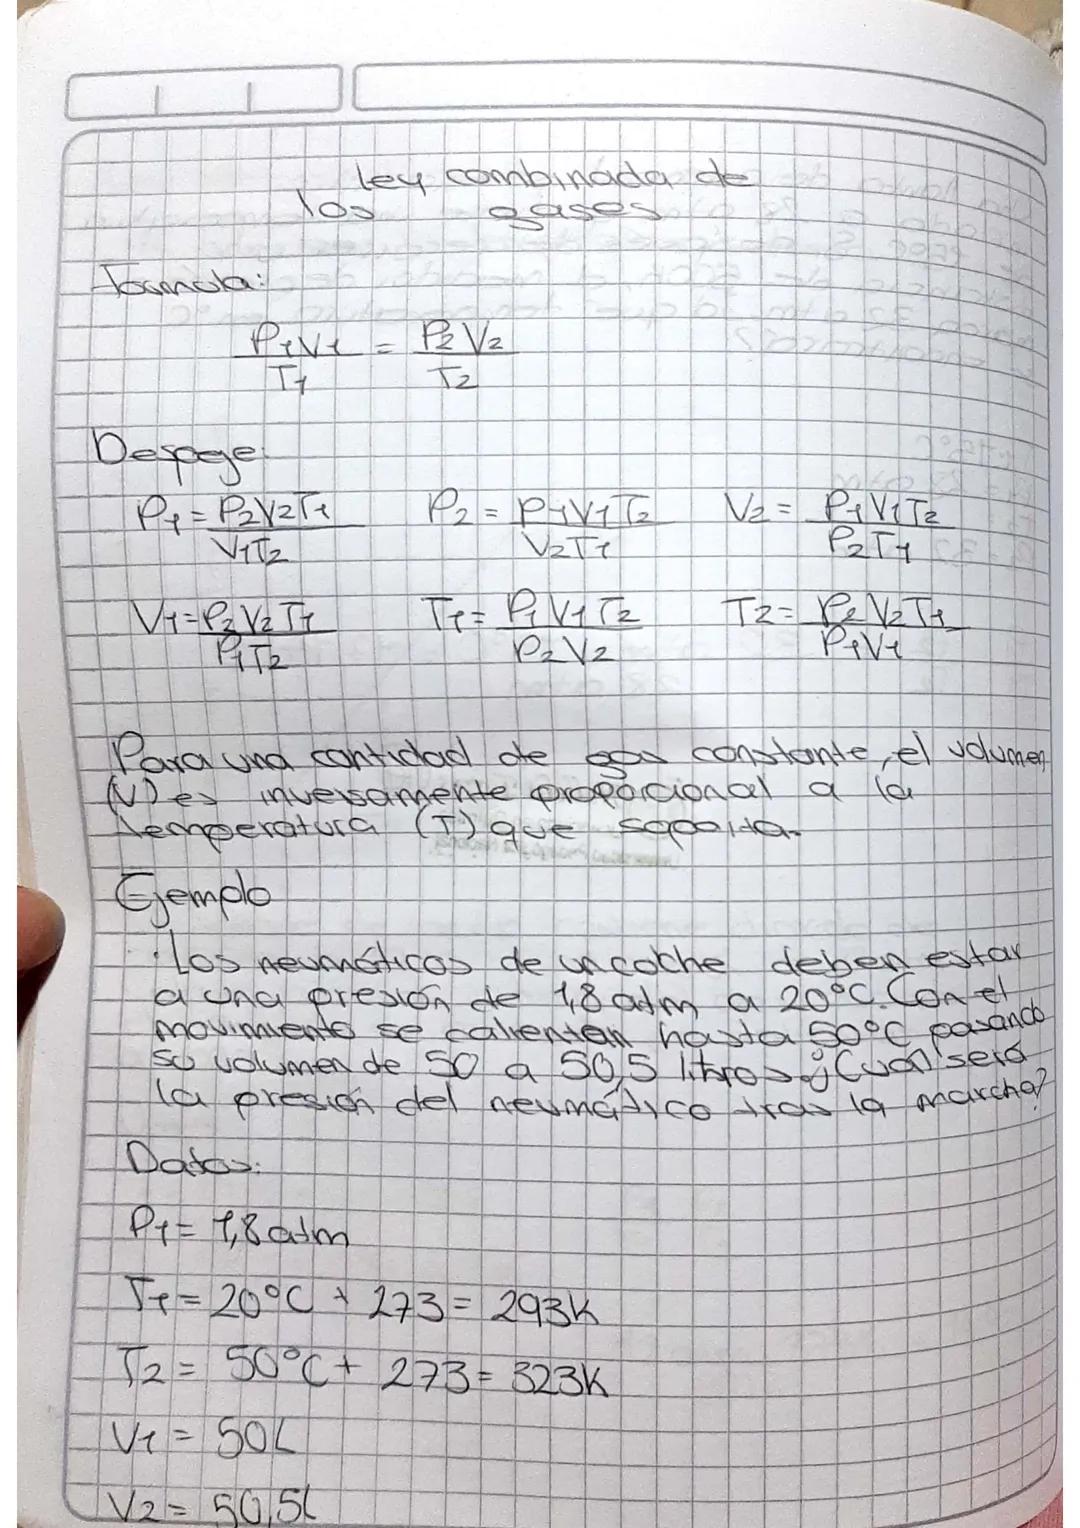 Ley combinada de
los gases
Formula:
P1V1/T1 = P2V2/T2
Despeje:
P1 = P2V2T1/V1T2 P2 = P1V1T2/V2T1 V2 = P1V1T2/P2T1
V1 = P2V2T1/P1T2 T1 = P1V1T2/P2V2 T2 = P2V2T1/P1V1
Para una cantidad de gas constante, el volumen
(V) es inversamente proporcional a la
temperatura (T) que soporta.
Ejemplo
· Los neumáticos de un coche deben estar
a una presión de 1,8 atm a 20°C. Con el
movimiento se calientan hasta 50°C pasando
su volumen de 50 a 50,5 litros. ¿Cuál será
la presión del neumático tras la marcha?
Datos:
P1 = 1,8 atm
T1 = 20°C + 273 = 293K
T2 = 50°C + 273 = 323K
V1 = 50L
V2 = 50,5L